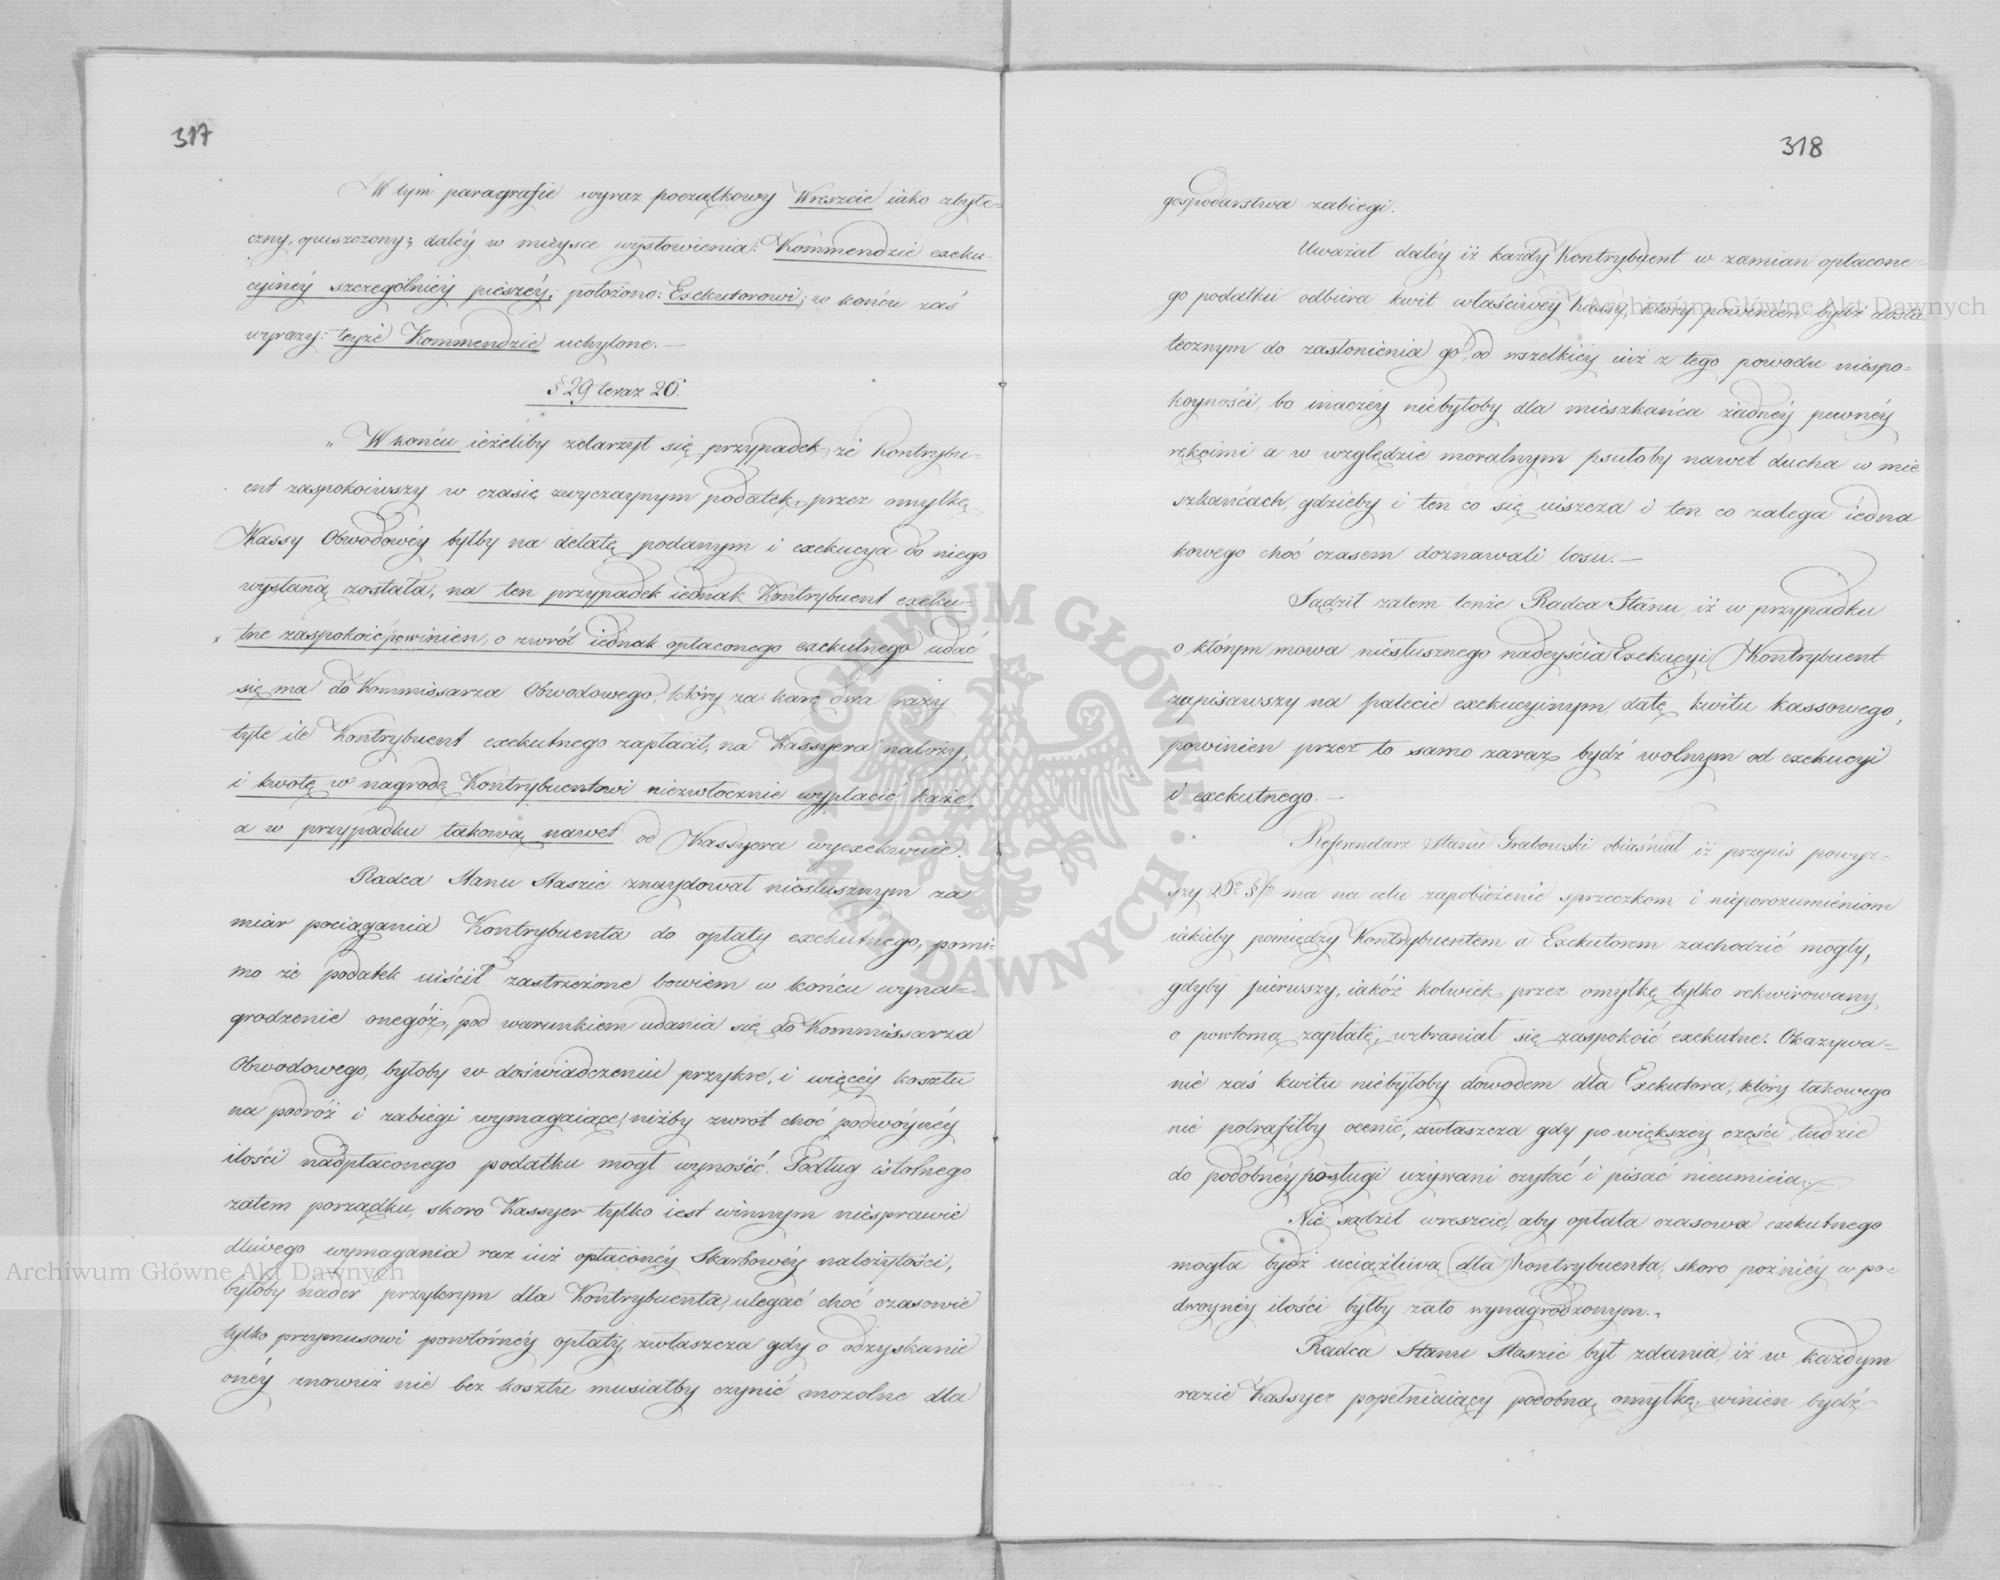 317
W tym paragrafie wyraz początkowy Wreszcie iako zbyte=
czny, opuszczony; daléy w mieysce wysłowienia: Kommendzie exeku-
cyinéy szczególniéy pieszéy; położono: Exekutorowi; w końcu zaś
wyrazy: teyże Kommendzie uchylone.—
§ 29 teraz 26.
„ W końcu ieżeliby zdarzył się przypadek, że Kontrybu-
ent zaspokoiwszy w czasie zwyczaynym podatek, przez omyłkę
Kassy Obwodowéy byłby na delatę podanym i exekucya do niego
wysłaną została, na ten przypadek iednak Kontrybuent exeku-
tne zaspokoić powinien, o zwrót iednak opłaconego exekutnego udać
się ma do Kommissarza Obwodowego, który za karę dwa razy
tyle ile Kontrybuent exekutnego zapłacił, na Kassyera nałoży,
i kwotę w nagrodę Kontrybuentowi niezwłocznie wypłacić każe,
a w przypadku takową nawet od Kassyera wyexekwuie.
Radca Stanu Staszic znaydował niesłusznym za
miar pociągania Kontrybuenta do opłaty exekutnego, pomi-
mo że podatek uiścił zastrzeżone bowiem w końcu wyna=
grodzenie onegóż, pod warunkiem udania się do Kommissarza
Obwodowego, byłoby w doświadczeniu przykre, i więcéy kosztu
na podróż i zabiegi wymagaiące, niżby zwrot choć podwóynéy
ilości nadpłaconego podatku mogł wynosić. Podług istotnego
zatem porządku, skoro Kassyer tylko iest winnym niesprawie
dliwego wymagania raz iuż opłaconéy Skarbowéy należytości,
byłoby nader przykrym dla Kontrybuenta, ulegać choć czasowie
tylko przymusowi powtórnéy opłaty, zwłaszcza gdy o odzyskanie
onéy znowuż nie bez kosztu musiałby czynić mozolne dla
318
gospodarstwa zabiegi.
Uważał daléy iż każdy Kontrybuent w zamian opłacone-
go podatku odbiera kwit właściwéy Kassy, który powinien bydź dosta
tecznym do zasłonienia go, od wszelkiéy iuż z tego powodu niespo-
koyności, bo inaczéy niebyłoby dla mieszkańca żadnéy pewnéy
rękoimi a w względzie moralnym psułoby nawet ducha w mie
szkańcach, gdzieby i ten co się uiszcza i ten co zalega iedna
kowego choć czasem doznawali losu.—
Sądził zatem tenże Radca Stanu, iż w przypadku
o którym mowa niesłusznego nadeyścia Exekucyi, Kontrybuent
zapisawszy na palecie exekucyinym, datę kwitu kassowego,
powinien przez to samo zaraz bydź wolnym od exekucyi
i exekutnego.—
Referendarz Stanu Grabowski obiaśniał iż przepis powyż-
szy 26º §fu ma na celu zapobieżenie sprzeczkom i nieporozumieniom
iakieby pomiędzy Kontrybuentem a Exekutorem zachodzić mogły,
gdyby pierwszy, iakóż kolwiek przez omyłkę tylko rekwirowany
o powtorną zapłatę, wzbraniał się zaspokoić exekutne. Okazywa=
nie zaś kwitu niebyłoby dowodem dla Exekutora, który takowego
nie potrafiłby ocenić, zwłaszcza gdy po większéy części ludzie
do podobnéy posługi używani czytać i pisać nieumieią.—
Nie sądził wreszcie, aby opłata czasowa exekutnego
mogła bydź uciążliwą dla Kontrybuenta, skoro późniéy w po-
dwoynéy ilości byłby zato wynagrodzonym.—
Radca Stanu Staszic był zdania, iż w każdym
razie Kassyer popełniaiący podobną omyłkę, winien bydź
Archiwum Główne Akt Dawnych
Archiwum Główne Akt Dawnych
ARCHIWUM GŁÓWNE · AKT DAWNYCH ·